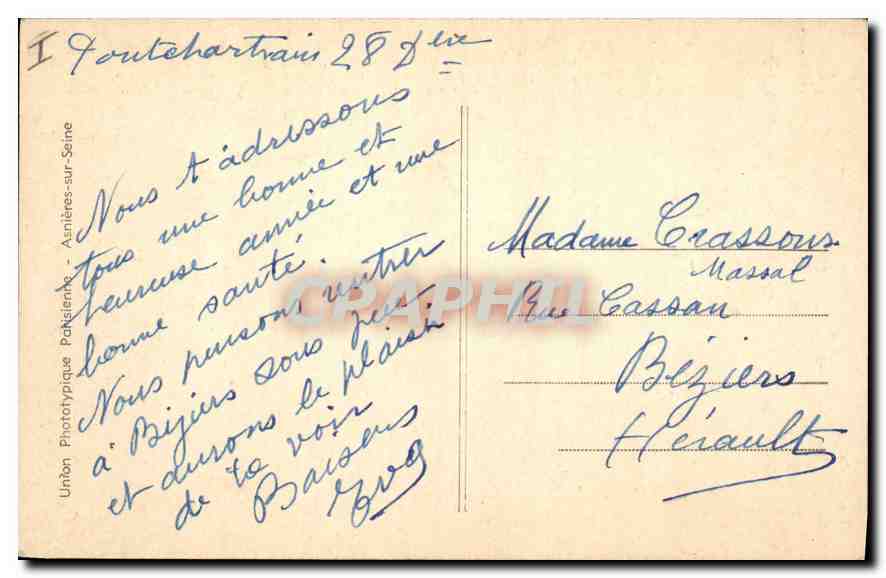 I Pontchartrain 28 Dbre
Nous t'adressons
tous une bonne et
heureuse année et une
bonne santé.
Nous pensons rentrer
à Béziers sous peu
et aurons le plaisir
de te voir
Baisers
Eva
Madame Crassous
Massal
Rue Cassan
Béziers
Hérault
Union Phototypique Parisienne - Asnières-sur-Seine
CPAPHIL